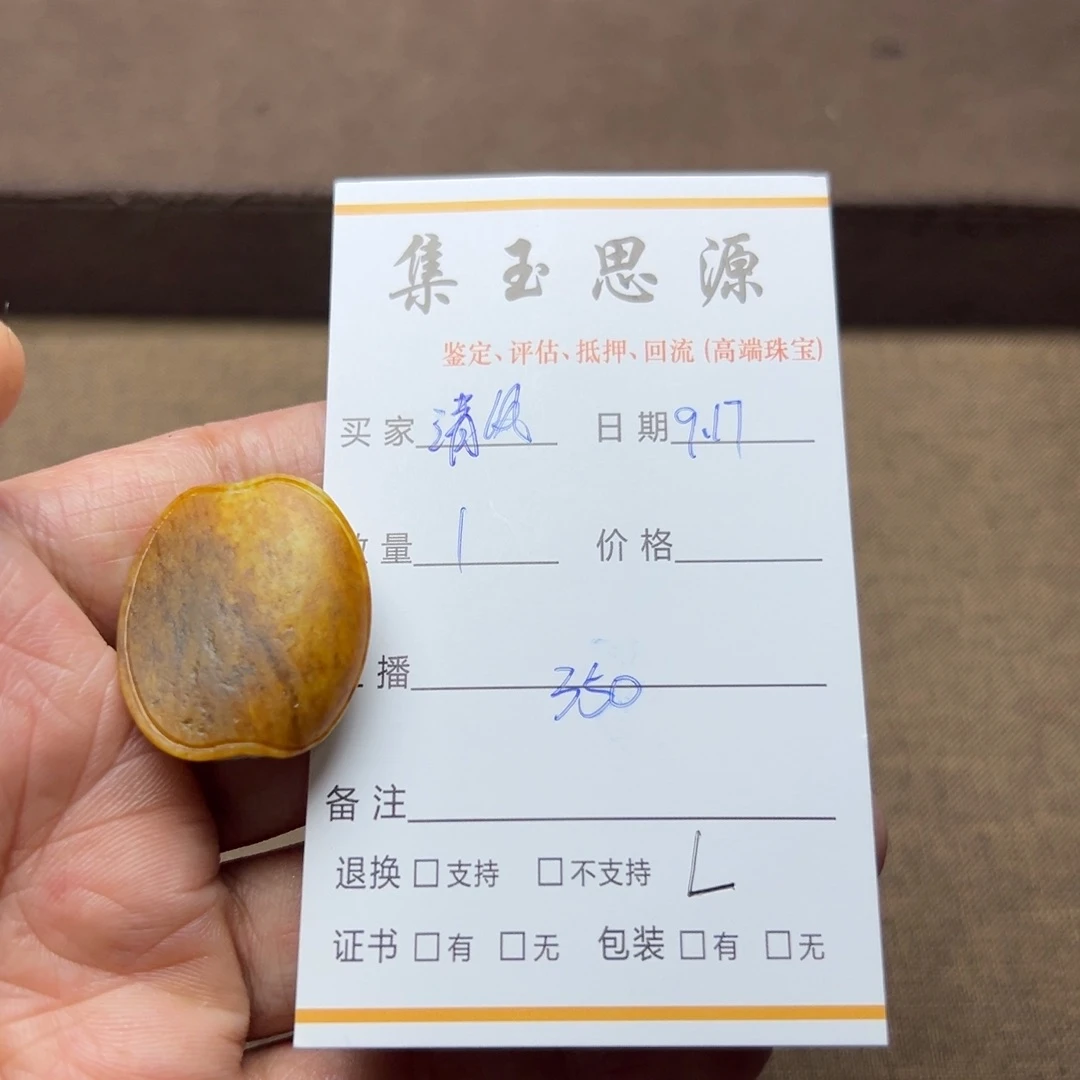 集玉思源
鉴定、评估、抵押、回流(高端珠宝)
买家 清风 日期 9.17
量 1 价格
播 350
备注
退换 □支持 □不支持 L
证书 □有 □无 包装 □有 □无